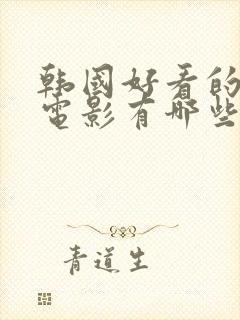 韩国好看的
电影有哪些
青道生